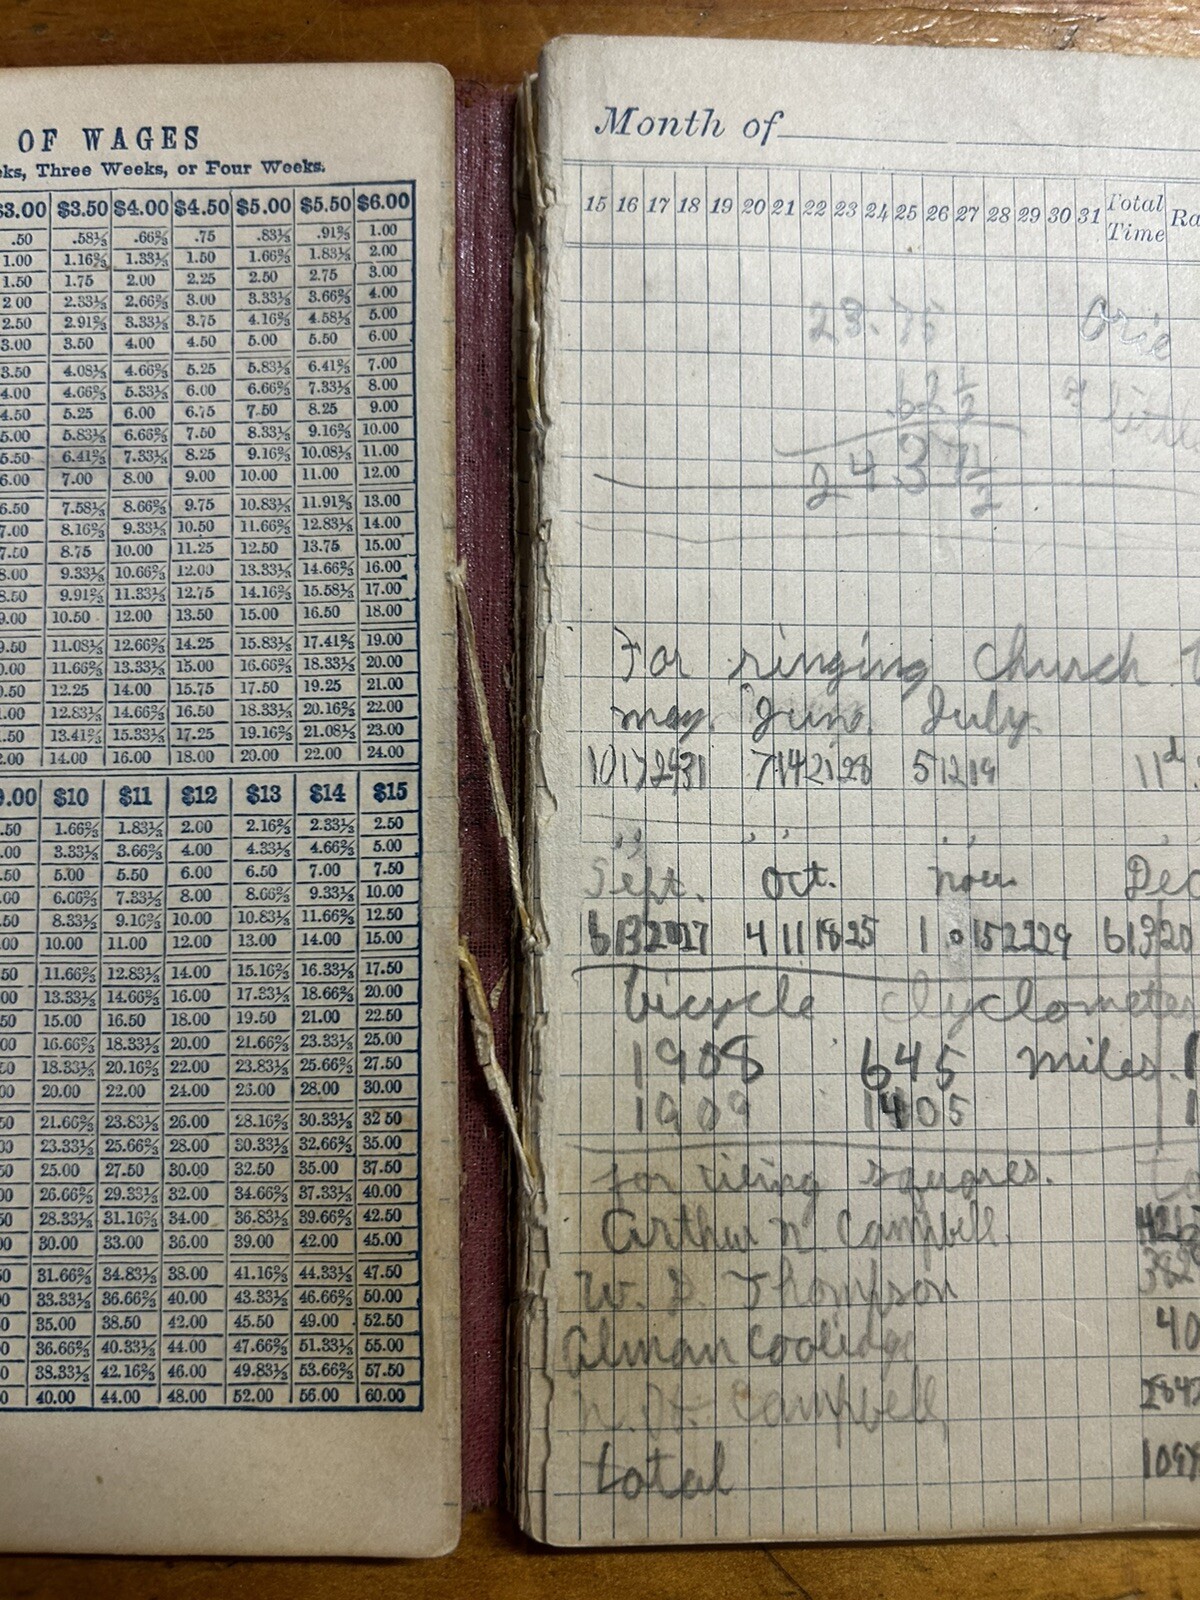 OF WAGES
eks, Three Weeks, or Four Weeks.
$3.00 $3.50 $4.00 $4.50 $5.00 $5.50 $6.00
.50 .58⅓ .66⅔ .75 .83⅓ .91⅔ 1.00
1.00 1.16⅔ 1.33⅓ 1.50 1.66⅔ 1.83⅓ 2.00
1.50 1.75 2.00 2.25 2.50 2.75 3.00
2 00 2.33⅓ 2.66⅔ 3.00 3.33⅓ 3.66⅔ 4.00
2.50 2.91⅔ 3.33⅓ 3.75 4.16⅔ 4.58⅓ 5.00
3.00 3.50 4.00 4.50 5.00 5.50 6.00
3.50 4.08⅓ 4.66⅔ 5.25 5.83⅓ 6.41⅔ 7.00
4.00 4.66⅔ 5.33⅓ 6.00 6.66⅔ 7.33⅓ 8.00
4.50 5.25 6.00 6.75 7.50 8.25 9.00
5.00 5.83⅓ 6.66⅔ 7.50 8.33⅓ 9.16⅔ 10.00
5.50 6.41⅔ 7.33⅓ 8.25 9.16⅔ 10.08⅓ 11.00
6.00 7.00 8.00 9.00 10.00 11.00 12.00
6.50 7.58⅓ 8.66⅔ 9.75 10.83⅓ 11.91⅔ 13.00
7.00 8.16⅔ 9.33⅓ 10.50 11.66⅔ 12.83⅓ 14.00
7.50 8.75 10.00 11.25 12.50 13.75 15.00
8.00 9.33⅓ 10.66⅔ 12.00 13.33⅓ 14.66⅔ 16.00
8.50 9.91⅔ 11.33⅓ 12.75 14.16⅔ 15.58⅓ 17.00
9.00 10.50 12.00 13.50 15.00 16.50 18.00
9.50 11.08⅓ 12.66⅔ 14.25 15.83⅓ 17.41⅔ 19.00
0.00 11.66⅔ 13.33⅓ 15.00 16.66⅔ 18.33⅓ 20.00
0.50 12.25 14.00 15.75 17.50 19.25 21.00
1.00 12.83⅓ 14.66⅔ 16.50 18.33⅓ 20.16⅔ 22.00
1.50 13.41⅔ 15.33⅓ 17.25 19.16⅔ 21.08⅓ 23.00
2.00 14.00 16.00 18.00 20.00 22.00 24.00
9.00 $10 $11 $12 $13 $14 $15
.50 1.66⅔ 1.83⅓ 2.00 2.16⅔ 2.33⅓ 2.50
.00 3.33⅓ 3.66⅔ 4.00 4.33⅓ 4.66⅔ 5.00
.50 5.00 5.50 6.00 6.50 7.00 7.50
.00 6.66⅔ 7.33⅓ 8.00 8.66⅔ 9.33⅓ 10.00
.50 8.33⅓ 9.16⅔ 10.00 10.83⅓ 11.66⅔ 12.50
.00 10.00 11.00 12.00 13.00 14.00 15.00
50 11.66⅔ 12.83⅓ 14.00 15.16⅔ 16.33⅓ 17.50
00 13.33⅓ 14.66⅔ 16.00 17.33⅓ 18.66⅔ 20.00
50 15.00 16.50 18.00 19.50 21.00 22.50
00 16.66⅔ 18.33⅓ 20.00 21.66⅔ 23.33⅓ 25.00
50 18.33⅓ 20.16⅔ 22.00 23.83⅓ 25.66⅔ 27.50
00 20.00 22.00 24.00 26.00 28.00 30.00
50 21.66⅔ 23.83⅓ 26.00 28.16⅔ 30.33⅓ 32 50
00 23.33⅓ 25.66⅔ 28.00 30.33⅓ 32.66⅔ 35.00
50 25.00 27.50 30.00 32.50 35.00 37.50
00 26.66⅔ 29.33⅓ 32.00 34.66⅔ 37.33⅓ 40.00
50 28.33⅓ 31.16⅔ 34.00 36.83⅓ 39.66⅔ 42.50
00 30.00 33.00 36.00 39.00 42.00 45.00
50 31.66⅔ 34.83⅓ 38.00 41.16⅔ 44.33⅓ 47.50
0 33.33⅓ 36.66⅔ 40.00 43.33⅓ 46.66⅔ 50.00
0 35.00 38.50 42.00 45.50 49.00 52.50
0 36.66⅔ 40.33⅓ 44.00 47.66⅔ 51.33⅓ 55.00
0 38.33⅓ 42.16⅔ 46.00 49.83⅓ 53.66⅔ 57.50
0 40.00 44.00 48.00 52.00 56.00 60.00
Month of
15 16 17 18 19 20 21 22 23 24 25 26 27 28 29 30 31 Total Time Ra
23.75
.62½
24 37½
For ringing church
may. June. July.
10 17 24 31 7 14 21 28 5 12 19 11
Sept. Oct. nov. Dec
6 13 20 27 4 11 18 25 1 15 22 29 6 13 20
bicycle Cyclometer
1908 645 miles.
1909 1405
for squares.
Arthur n. Campbell.
W. Thompson
alman Coolidge 40
n. H. Campbell
total